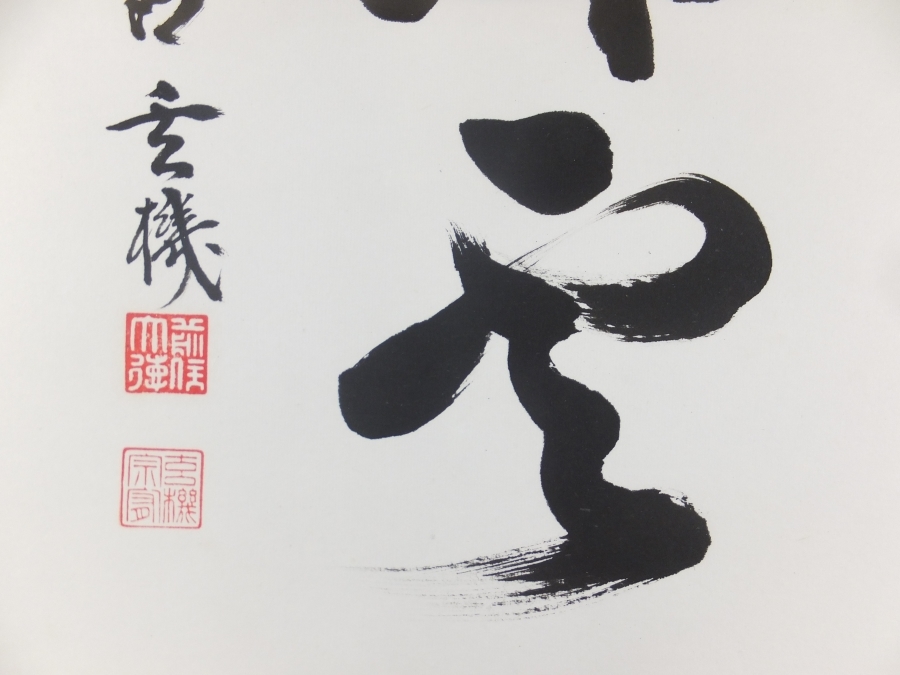 空
玄機
前住
大德
玄機
宗